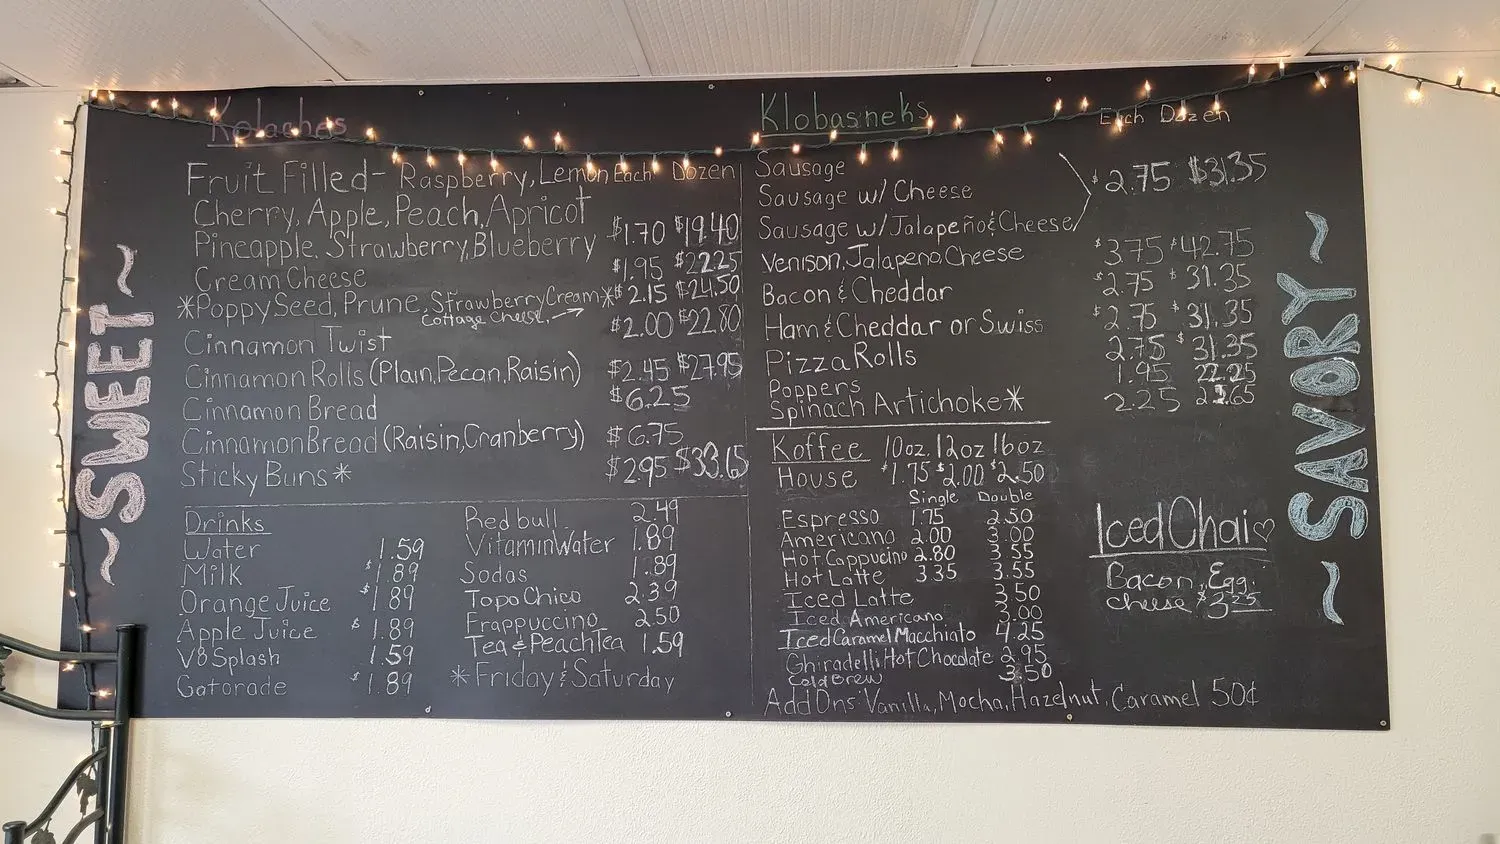 ~SWEET~
Kolaches
Each Dozen
Fruit Filled- Raspberry, Lemon
Cherry, Apple, Peach, Apricot
Pineapple, Strawberry, Blueberry $1.70 $19.40
Cream Cheese $1.95 $22.25
*Poppy Seed, Prune, Strawberry Cream* $2.15 $24.50
Cottage Cheese,
Cinnamon Twist $2.00 $22.80
Cinnamon Rolls (Plain, Pecan, Raisin) $2.45 $27.95
Cinnamon Bread $6.25
Cinnamon Bread (Raisin, Cranberry) $6.75
Sticky Buns* $2.95 $33.65
Drinks
Water 1.59
Milk $1.89
Orange Juice $1.89
Apple Juice $1.89
V8 Splash 1.59
Gatorade $1.89
Redbull 2.49
Vitamin Water 1.89
Sodas 1.89
Topo Chico 2.39
Frappuccino 2.50
Tea & Peach Tea 1.59
*Friday & Saturday
Klobasneks
Each Dozen
Sausage
Sausage w/ Cheese $2.75 $31.35
Sausage w/ Jalapeño & Cheese
Venison, Jalapeno, Cheese $3.75 $42.75
Bacon & Cheddar $2.75 $31.35
Ham & Cheddar or Swiss $2.75 $31.35
Pizza Rolls 2.75 $31.35
Poppers 1.95 22.25
Spinach Artichoke* 2.25
Koffee 10oz. 12oz 16oz
House $1.75 $2.00 $2.50
Single Double
Espresso 1.75 2.50
Americano 2.00 3.00
Hot Cappucino 2.80 3.55
Hot Latte 3.35 3.55
Iced Latte 3.50
Iced Americano 3.00
Iced Caramel Macchiato 4.25
Ghiradelli Hot Chocolate 2.95
Cold Brew 3.50
Add Ons: Vanilla, Mocha, Hazelnut, Caramel 50¢
Iced Chai♡
Bacon, Egg,
Cheese $3.25
~SAVORY~